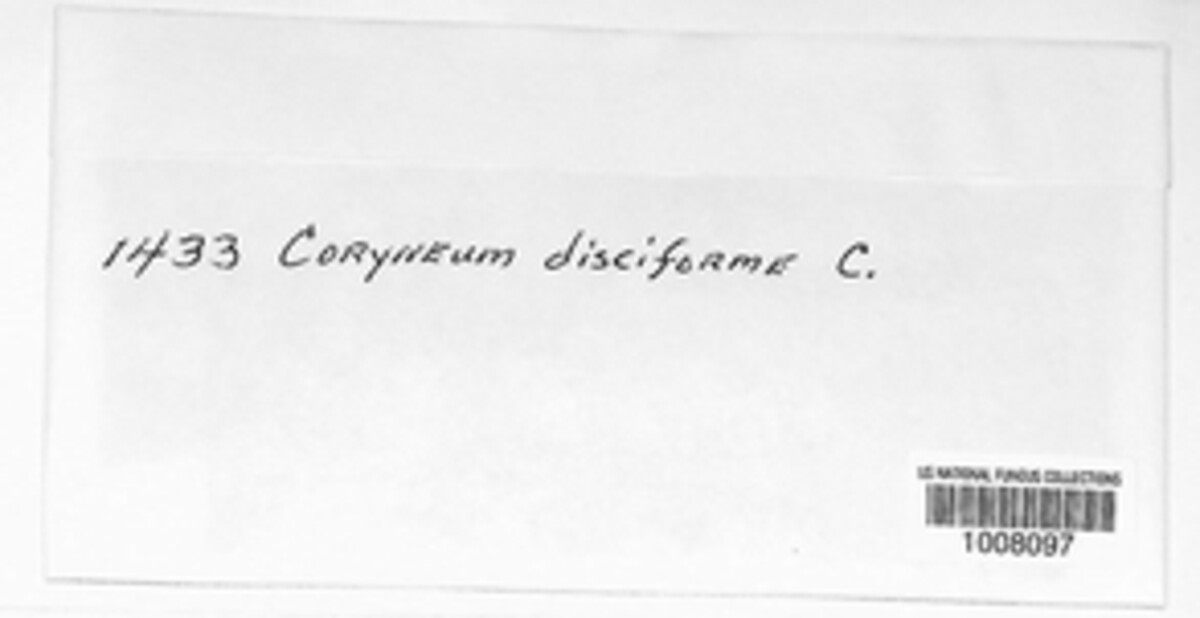 1433 Coryneum disciforme C.
US NATIONAL FUNGUS COLLECTIONS
1008097